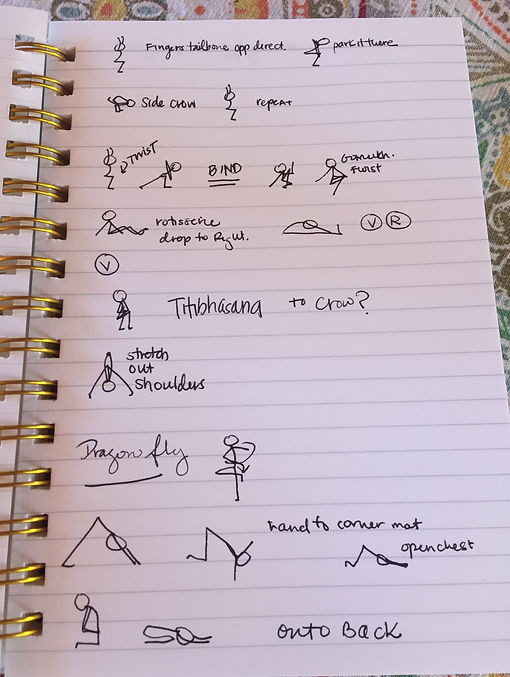 Fingers tailbone opp direct. park it there
Side crow repeat
Twist BIND Gomukh. Twist
rotisserie
drop to Right. V R
V
Titibhasana to crow?
stretch
out
shoulders
Dragonfly
hand to corner mat
open chest
onto Back